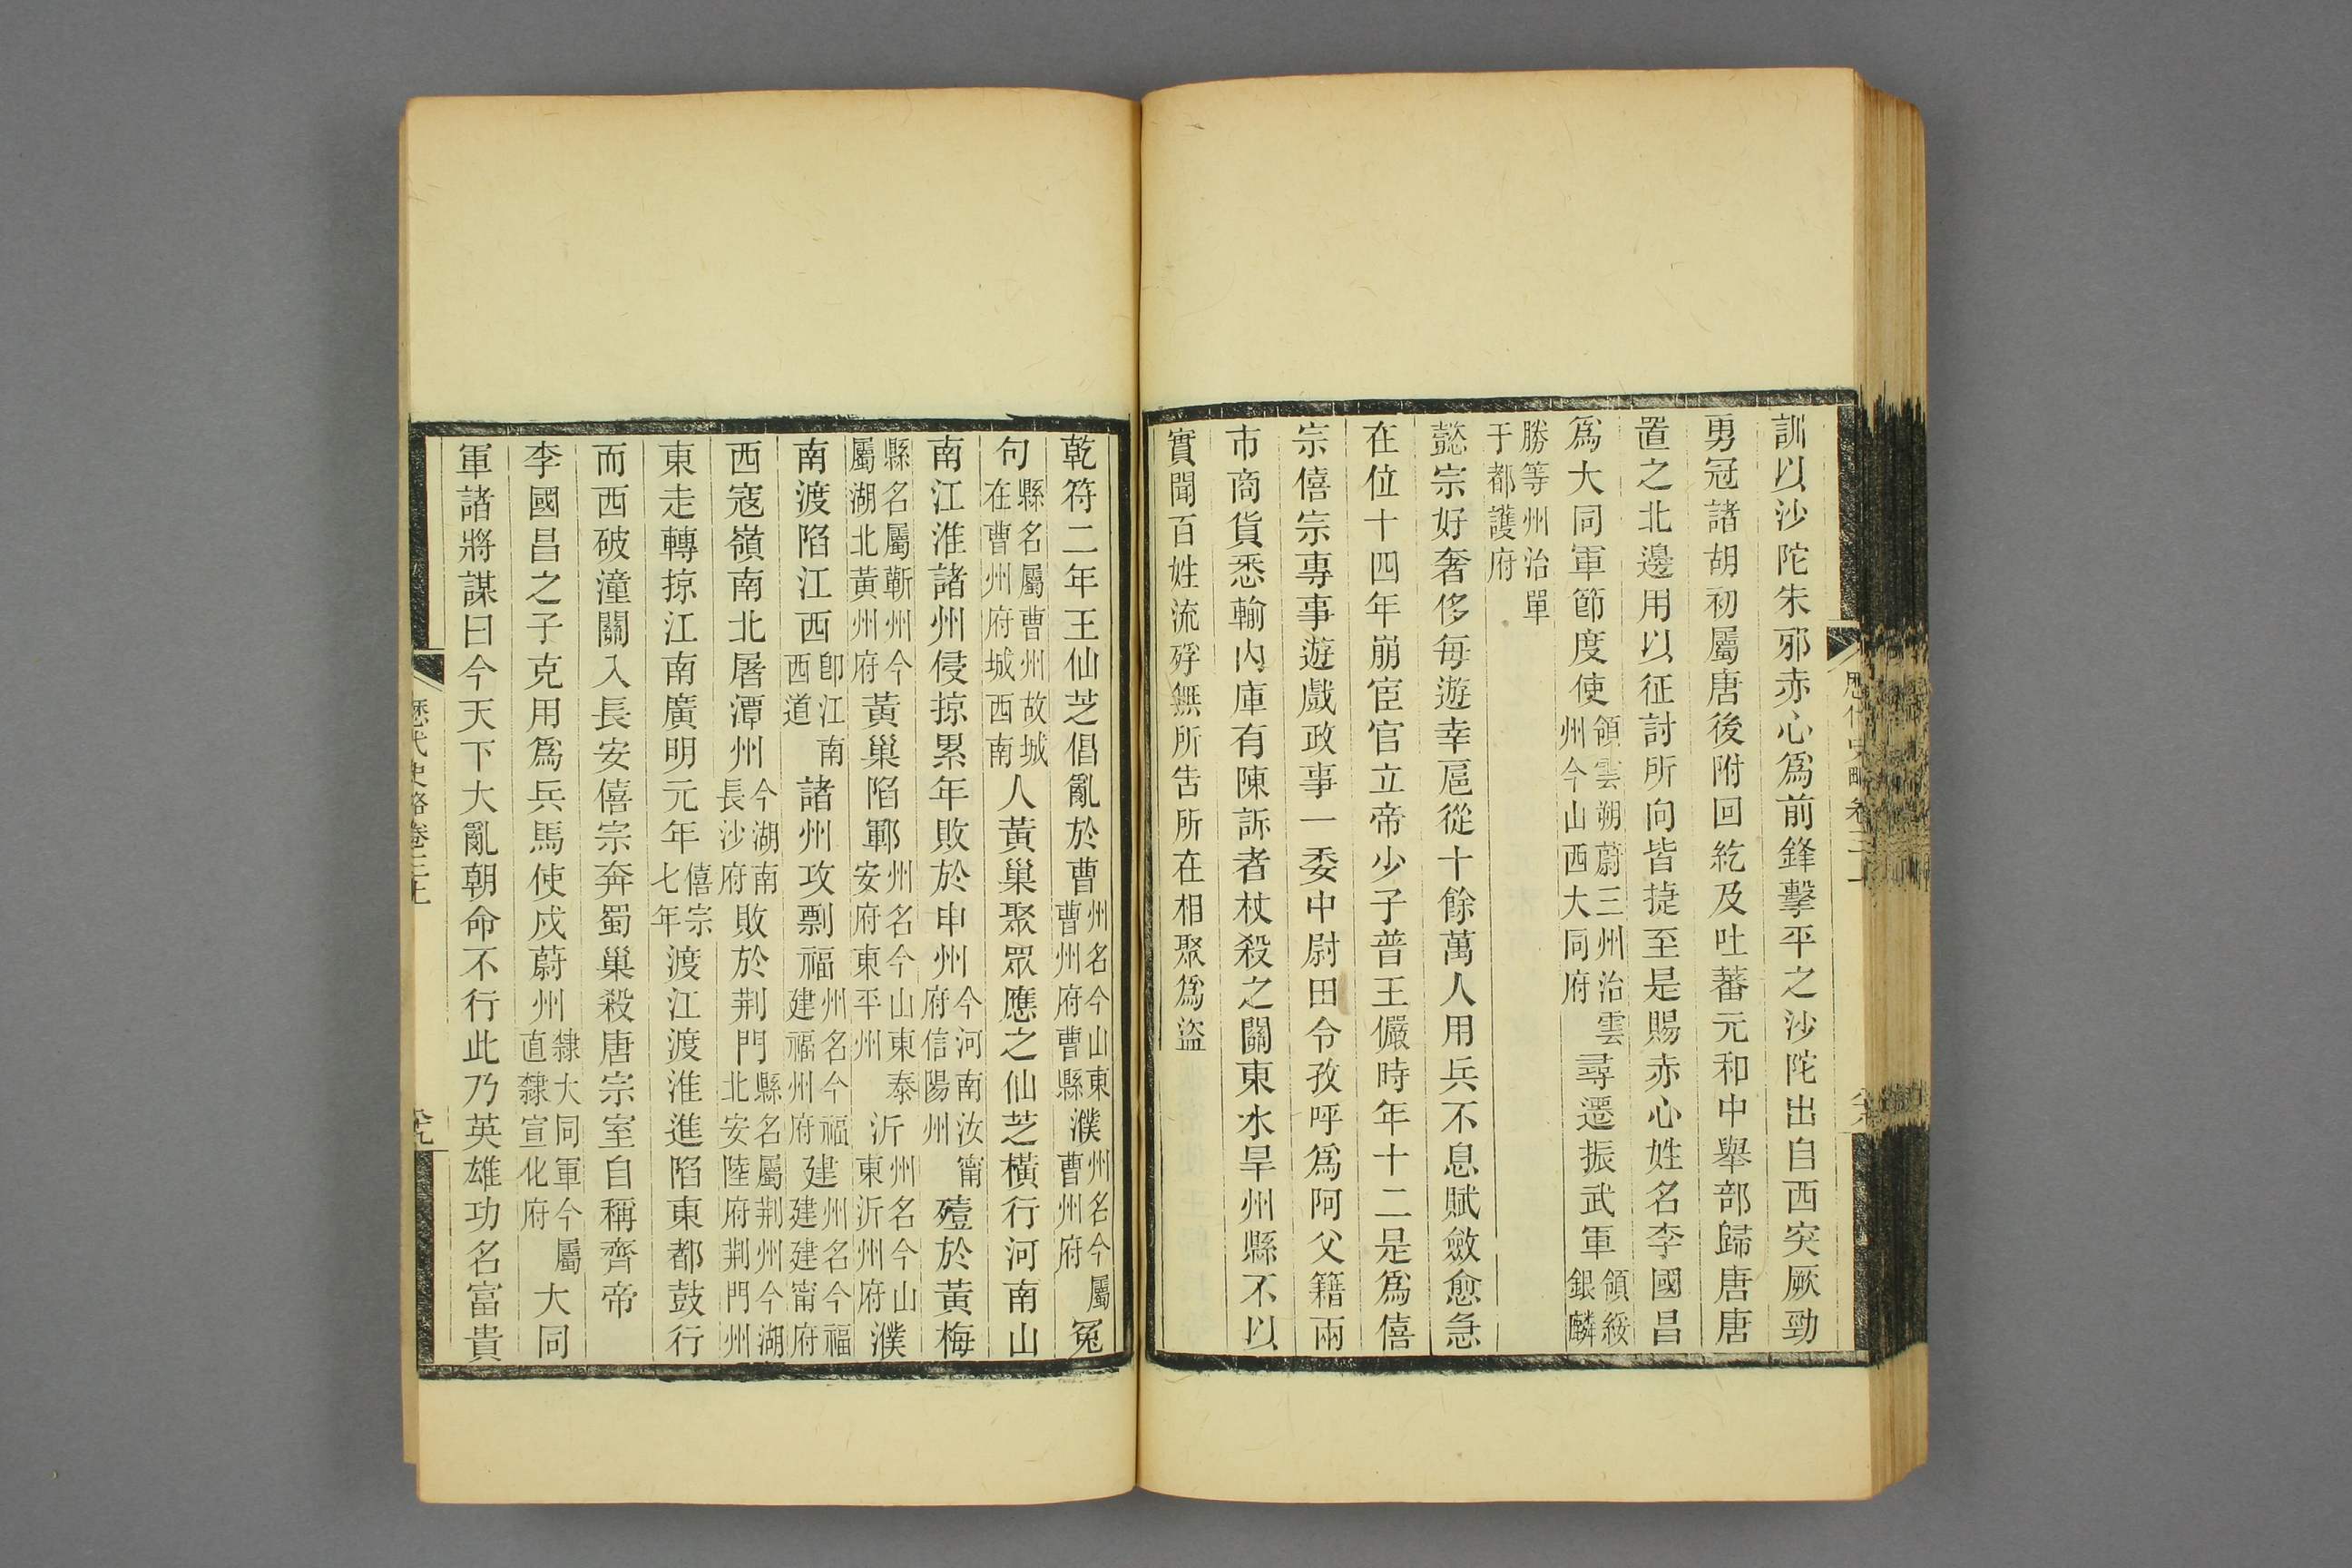 訓以沙陀朱邪赤心爲前鋒擊平之沙陀出自西突厥勁
勇冠諸胡初屬唐後附回紇及吐蕃元和中舉部歸唐唐
置之北邊用以征討所向皆捷至是賜赤心姓名李國昌
爲大同軍節度使領雲朔蔚三州治雲州今山西大同府尋遷振武軍領綏銀麟
勝等州治單于都護府
懿宗好奢侈每遊幸扈從十餘萬人用兵不息賦斂愈急
在位十四年崩宦官立帝少子普王儼時年十二是爲僖
宗僖宗專事遊戲政事一委中尉田令孜呼爲阿父籍兩
市商貨悉輸內庫有陳訴者杖殺之關東水旱州縣不以
實聞百姓流殍無所告所在相聚爲盜
乾符二年王仙芝倡亂於曹州名今山東曹州府曹縣濮州名今屬曹州府冤
句縣名屬曹州故城在曹州府城西南人黃巢聚眾應之仙芝橫行河南山
南江淮諸州侵掠累年敗於申州今河南汝甯府信陽州殪於黃梅
縣名屬蘄州今屬湖北黃州府黃巢陷鄆州名今山東泰安府東平州沂州名今山東沂州府濮
南渡陷江西卽江南西道諸州攻剽福州名今福建福州府建州名今福建建甯府
西寇嶺南北屠潭州今湖南長沙府敗於荆門縣名屬荆州今湖北安陸府荆門州
東走轉掠江南廣明元年僖宗七年渡江渡淮進陷東都鼓行
而西破潼關入長安僖宗奔蜀巢殺唐宗室自稱齊帝
李國昌之子克用爲兵馬使戍蔚州隸大同軍今屬直隸宣化府大同
軍諸將謀曰今天下大亂朝命不行此乃英雄功名富貴
歷代史略卷三上